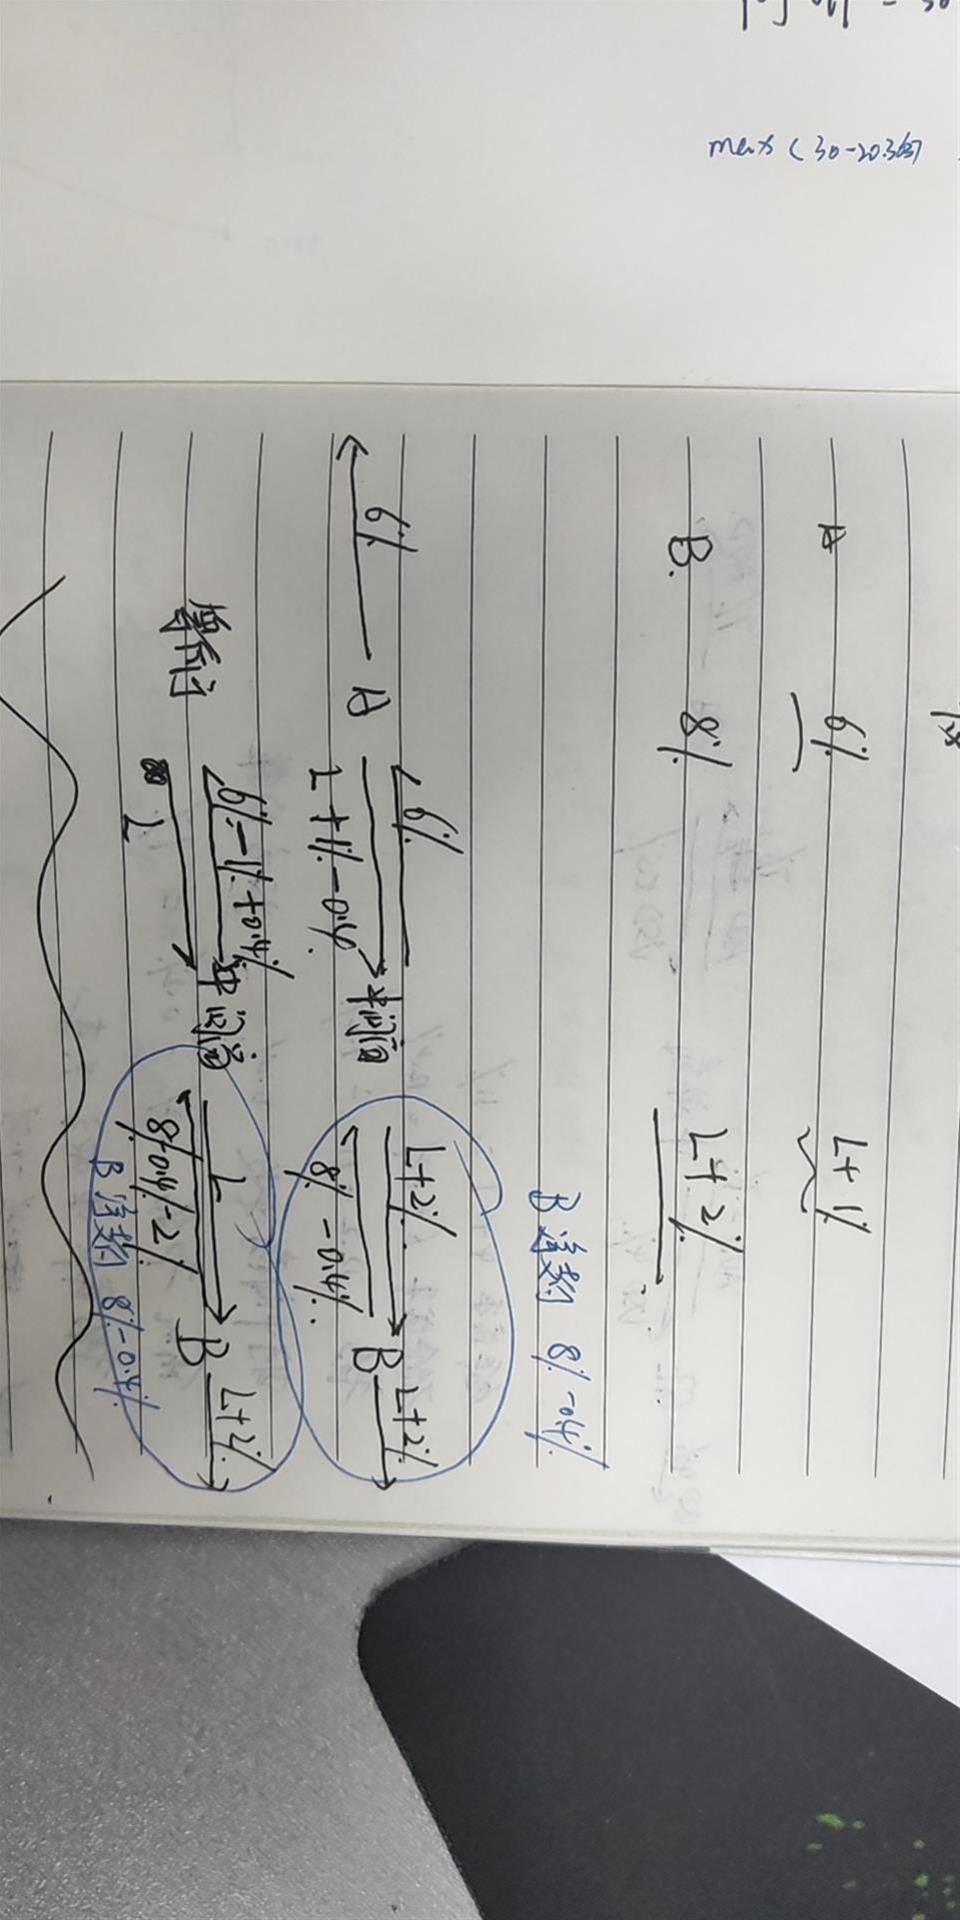 max (30-20.36)
A 6% L+1%
B. 8% L+2%
B 违约 8%-0.4%
6% 6% L+2% L+2%
A 中间商 B
L+1%-0.4% 8%-0.4%
6%-1%+0.4% L L+2%
等价于 中间商 B
L 8%-0.4%-2%
B 违约 8%-0.4%